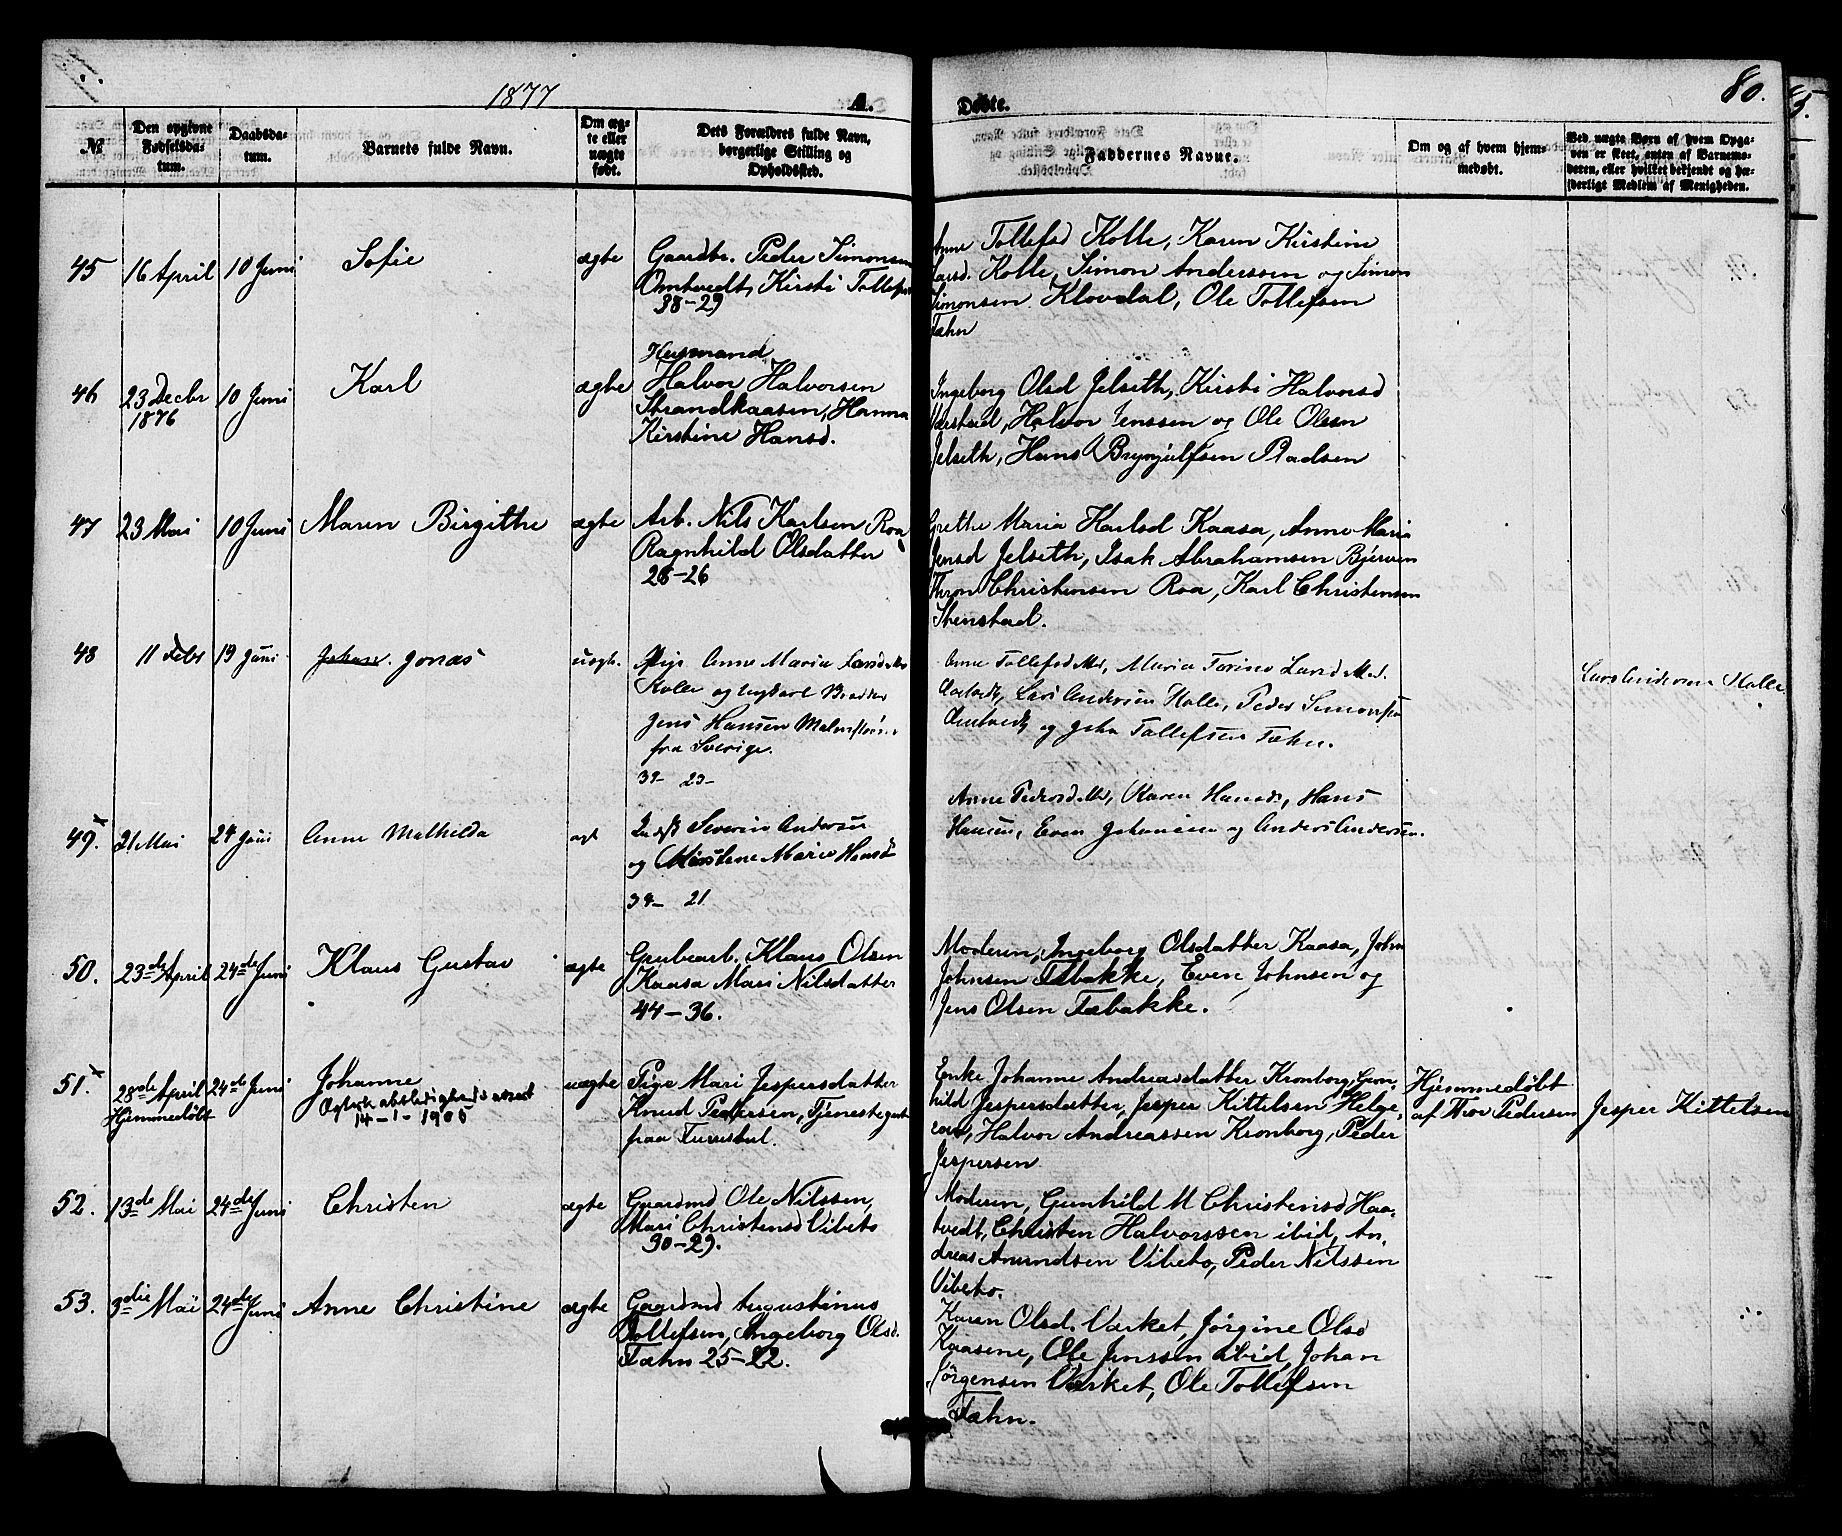 1877
A.
Døbte.
80.
№
Den opgivne Fødselsdatum.
Daabsdatum.
Barnets fulde Navn.
Om ægte eller uægte født.
Dets Forældres fulde Navn, borgerlige Stilling og Opholdssted.
Faddernes Navne.
Om og af hvem hjemmedøbt.
Ved uægte Børn af hvem Opgaven er skeet, enten af Barnemoderen, eller hvilket bekjendt og hæderligt Medlem af Menigheden.
45
16 April
10 Juni
Sofie
ægte
Gaardbr. Peder Simonsen
Omtvedt, Kirsti Tollefsd
38-29
Anne Tollefsd Kolle, Karen Kirstine
Larsd. Kolle, Simon Anderssen og Simon
Simonsen Klovdal, Ole Tollefsen
Fæhn
46
23 Decbr
1876
10 Juni
Karl
ægte
Husmand
Halvor Halvorsen
Strandkaasen, Hanna
Kirstine Hansd.
Ingeborg Olsd Jelseth, Kirsti Halvorsd
Halvor Jenssen og Ole Olsen
Jelseth, Hans Brynjulfsen Pladsen
47
23 Mai
10 Juni
Maren Birgithe
ægte
Arb. Nils Karlsen Roa
Ragnhild Olsdatter
28-26
Grethe Maria Karlsd Kaasa, Anne Maria
Jensd Jelseth, Isak Abrahamsen Bjerven
Thron Christensen Roa, Karl Christensen
Stenstad.
48
11 Febr
19 Juni
Johan. Jonas
uægt.
Pige Anne Maria Larsdatter
Kolle og
Jens Hansen
fra Sverige.
23-
Anne Tollefsdatter, Maria Larsdatter
Lars Andersen Kolle, Peder Simonsen
Omtvedt og John Tollefsen Fæhn.
Lars Andersen Kolle
49.
21 Mai
24 Juni
Anne Mathilda
ægt
Severin Andersen
og Kirstene Marie Hansd
34- 21
Anne Pedersdatter, Karen Hansd, Hans
Hansen, Even Johansen og Anders Andersen.
50.
23de April
24de Juni
Klaus Gustav
ægte
Grubearb. Klaus Olsen
Kaasa Mari Nilsdatter
44-36.
Moderen, Ingeborg Olsdatter Kaasa, John
Johnsen Tæbakke, Even Johnsen og
Jens Olsen Tæbakke.
51.
28de April
Hjemmedøbt
24de Juni
Johanne
14-1-1905
uægte
Pige Mari Jespersdatter
Knud Pedersen, Tjenestegut
paa
Enke Johanne Andreasdatter Kronborg, Gunhild
Jespersdatter, Jesper Kittelsen
Halvor Andreassen Kronborg, Peder
Jespersen
Hjemmedøbt
af Thor Pedersen
Jesper Kittelsen
52.
13de Mai
24de Juni
Christen
ægte
Gaardmd Ole Nilssen,
Mari Christensd Vibeto
30-29.
Moderen, Gunhild M Christensd Haatvedt,
Christen Halvorssen ibid, Andreas
Amundsen Vibeto, Peder Nilssen
Vibeto.
53.
3die Mai
24de Juni
Anne Christine
ægte
Gaardmd Augustinus
Tollefsen, Ingeborg Olsd.
Fæhn 25-22.
Karen Olsd. Værket, Jørgine Olsd
Kaasene, Ole Jenssen ibid, Johan
Jørgensen Værket, Ole Tollefsen
Fæhn.